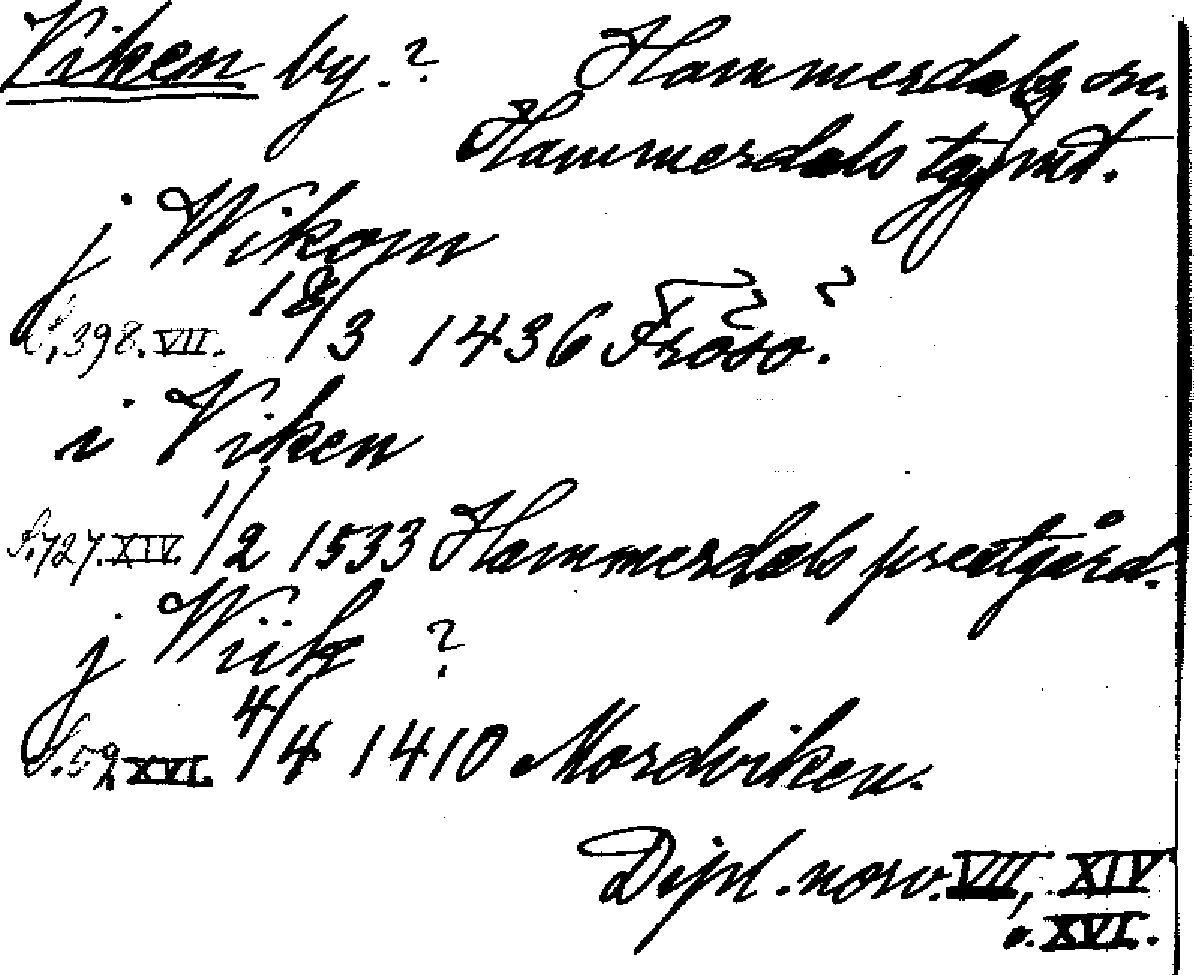 Viken by.? Hammerdals sn.
Hammerdals tgsmt.
j Wikom
S. 398. VII. 18/3 1436 Frösö. ?
i Viken
S. 727. XIV. 1/2 1533 Hammerdals prestgård.
j Wiik ?
S. 52 XVI. 4/4 1410 Mordviken.
Dipl. norv. VII, XIV
o. XVI.